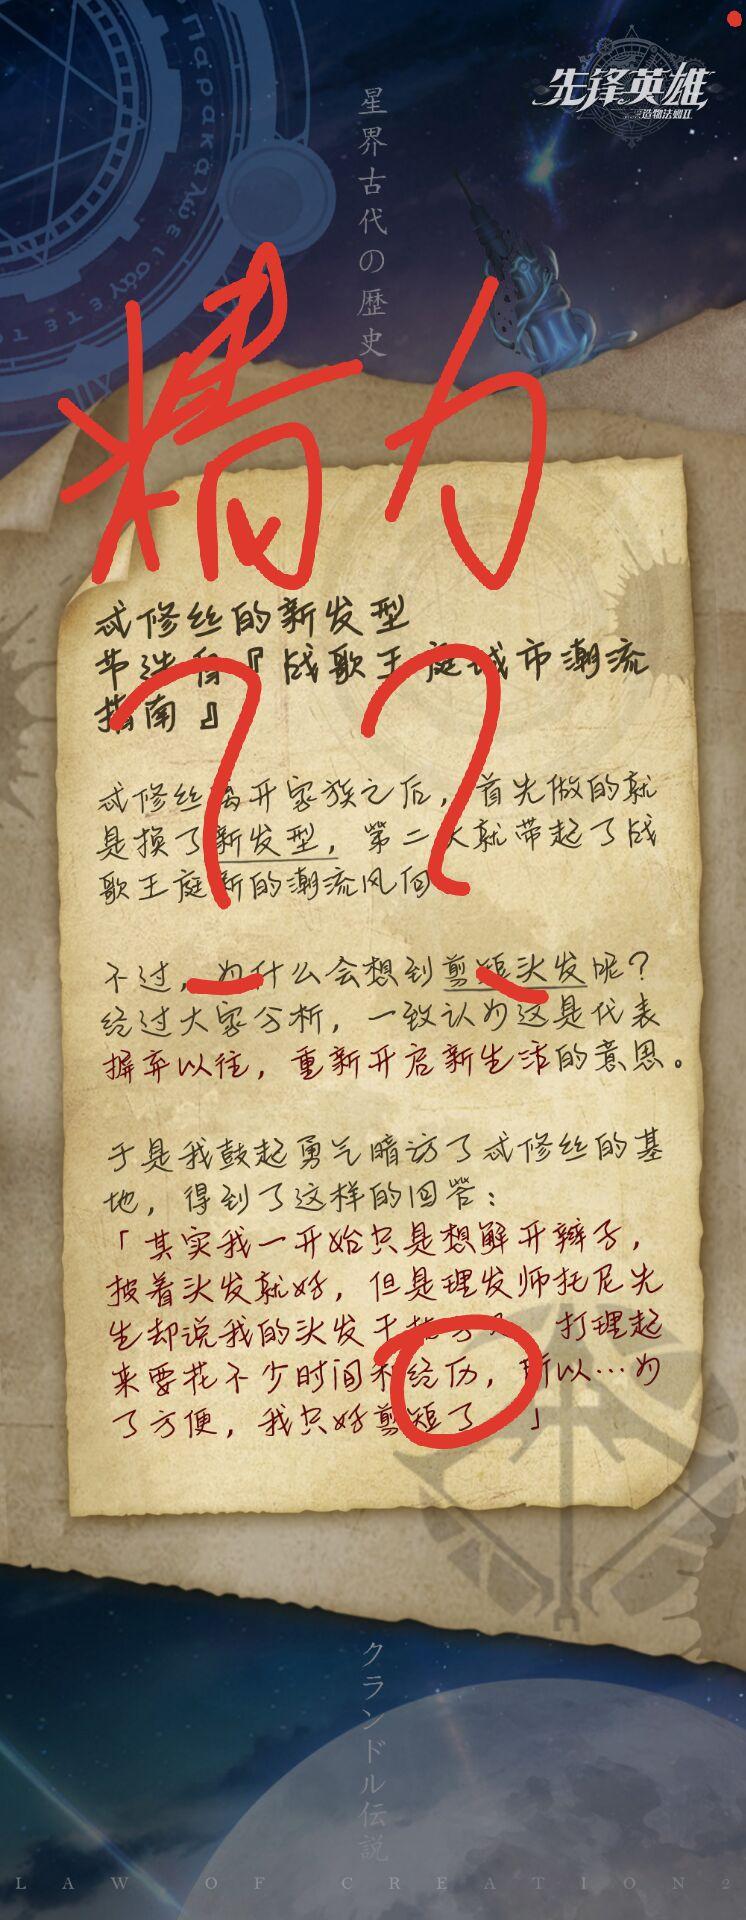 先锋英雄
造物法则II
星界古代の歴史
精力
??
忒修丝的新发型
节选自『战歌王庭城市潮流
指南』
忒修丝离开家族之后，首先做的就
是换了新发型，第二天就带起了战
歌王庭新的潮流风向
不过，为什么会想到剪短头发呢？
经过大家分析，一致认为这是代表
摒弃以往，重新开启新生活的意思。
于是我鼓起勇气暗访了忒修丝的基
地，得到了这样的回答：
「其实我一开始只是想解开辫子，
披着头发就好，但是理发师托尼先
生却说我的头发干枯 打理起
来要花不少时间和经历，所以…为
了方便，我只好剪短了 」
クランドル伝説
LAW OF CREATION2